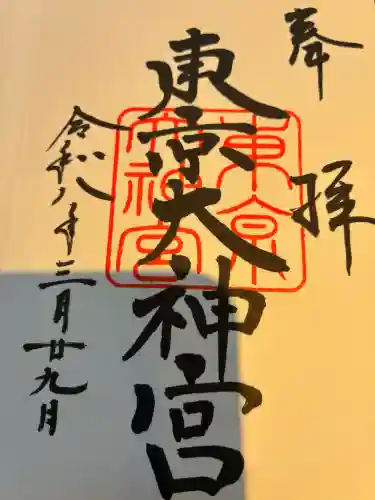 奉拝
東京大神宮
東京大神宮
令和八年三月廿九月